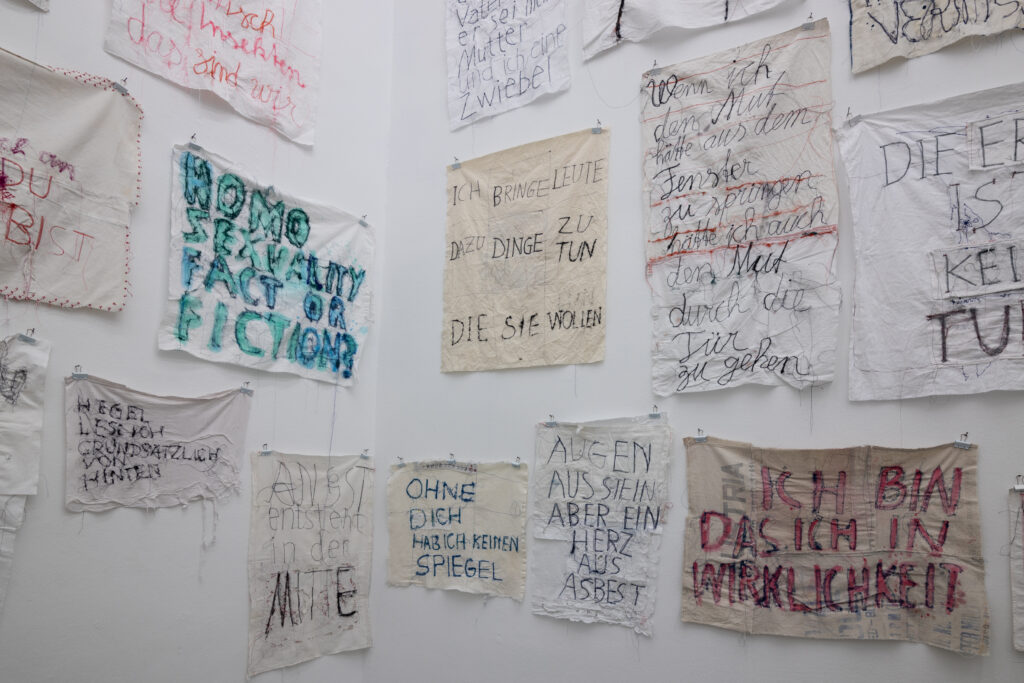 Insekten
das sind wir
Vater
er sei mein
Mutter
und ich eine
Zwiebel
DU
BIST
HOMO
SEXUALITY
FACT OR
FICTION?
ICH BRINGE LEUTE
DAZU DINGE ZU
TUN
DIE SIE WOLLEN
Wenn ich
den Mut
hätte aus dem
Fenster
zu springen
hätte ich auch
den Mut
durch die
Tür
zu gehen
DIE
IST
HEGEL
LES ICH
GRUNDSÄTZLICH
VON
HINTEN
ANGST
entsteht
in der
MITTE
OHNE
DICH
HAB ICH KEINEN
SPIEGEL
AUGEN
AUS STEIN
ABER EIN
HERZ
AUS
ASBEST
ICH BIN
DAS ICH IN
WIRKLICHKEIT